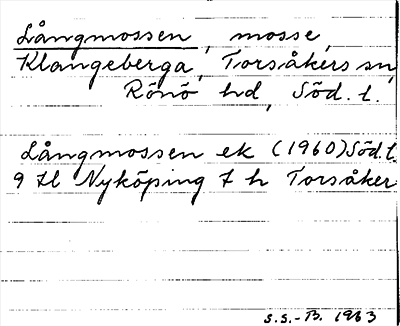 Långmossen, mosse,
Klangeberga, Torsåkers sn,
Rönö hd, Söd. l.
Långmossen ek (1960) Söd. l.
9 H Nyköping 7 h Torsåker
S.S.-B. 1963